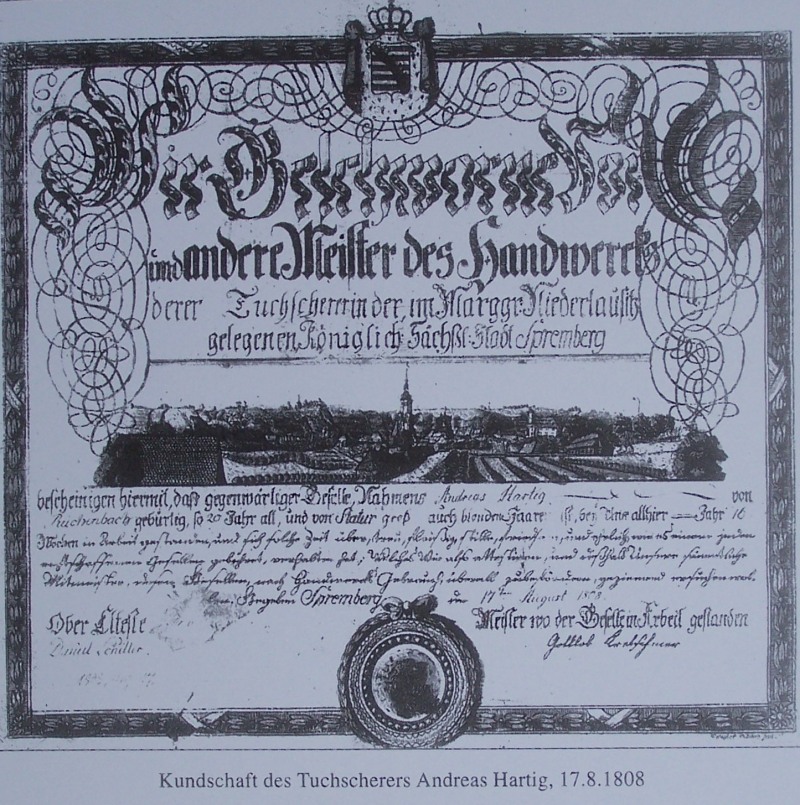 Wir Geschworne Vor
und andere Meister des Handwercks
derer Tuchscherer in der, im Marggr: Niederlausitz
gelegenen Königlich Sächßl: Stadt Spremberg
bescheinigen hiermit, daß gegenwärtiger Geselle, Nahmens Andreas Hartig von
gebürtig, so 20 Jahr alt, und von Statur groß auch blonden Haare ist, bey Uns allhier Jahr 16
Wochen in Arbeit gestanden, und sich solche Zeit über, treu, fleißig, stille, friedsam, und ehrlich, wie es einem jeden
rechtschaffenen Gesellen gebühret, verhalten hat; Welches Wir also attestiren, und deßhalb Unsere sämmtliche
Mitmeister, diesen Gesellen, nach Handwercks Gebrauch, überall zu befördern, geziemend ersuchen wol-
len. Gegeben Spremberg den 17ten August 1808
Ober Elteste
Meister wo der Geselle in Arbeit gestanden
Daniel Schiller
Gottlob Kretschmer
Kundschaft des Tuchscherers Andreas Hartig, 17.8.1808